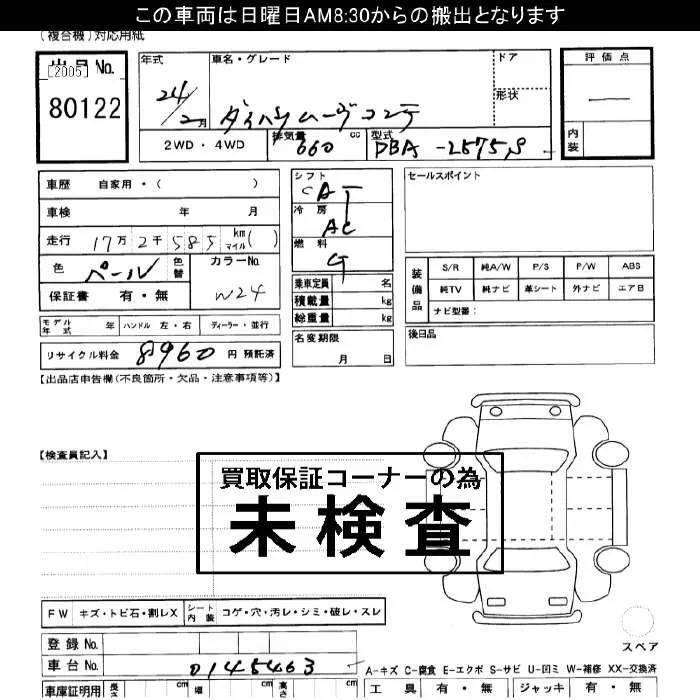 この車両は日曜日AM8:30からの搬出となります
(複合機)対応用紙
出品No. [2005]
80122
年式 24/2月
車名・グレード ダイハツムーヴコンテ
ドア
形状
評価点
—
内装
2WD・4WD
排気量 660 cc
型式 DBA-L575S
車歴 自家用・( )
車検 年 月
走行 17万2千585 km マイル( )
色 パール 色替
カラーNo. W24
保証書 有・無
シフト CAT
冷房 AC
燃料 G
乗車定員 名
積載量 kg
総重量 kg
名変期限
月 日
セールスポイント
装備品
S/R 純A/W P/S P/W ABS
純TV 純ナビ 革シート 外ナビ エアB
ナビ型番:
後日品
モデル年式 年 ハンドル 左・右 ディーラー・並行
リサイクル料金 8960 円 預託済
【出品店申告欄(不良箇所・欠品・注意事項等)】
【検査員記入】
買取保証コーナーの為
未検査
FW キズ・トビ石・割レX シート内装 コゲ・穴・汚レ・シミ・破レ・スレ
スペア
登録No.
車台No. 0145463
A-キズ C-腐食 E-エクボ S-サビ U-凹ミ W-補修 XX-交換済
車庫証明用 長さ cm 幅 cm 高さ cm
工具 有・無 ジャッキ 有・無